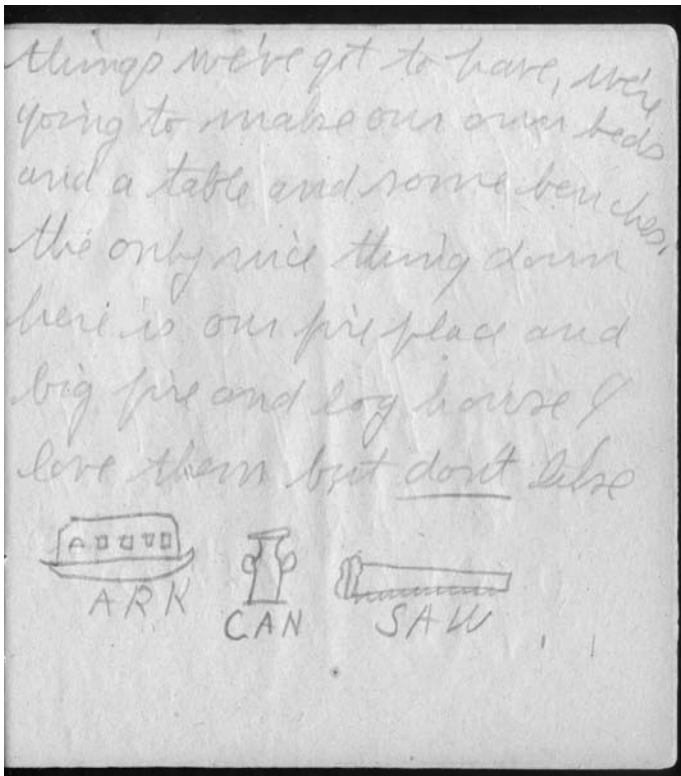 things we've got to have, we're
going to make our own beds
and a table and some benches,
the only nice thing down
here is our fire place and
big fire and log house I
love them but don't like
ARK
CAN
SAW